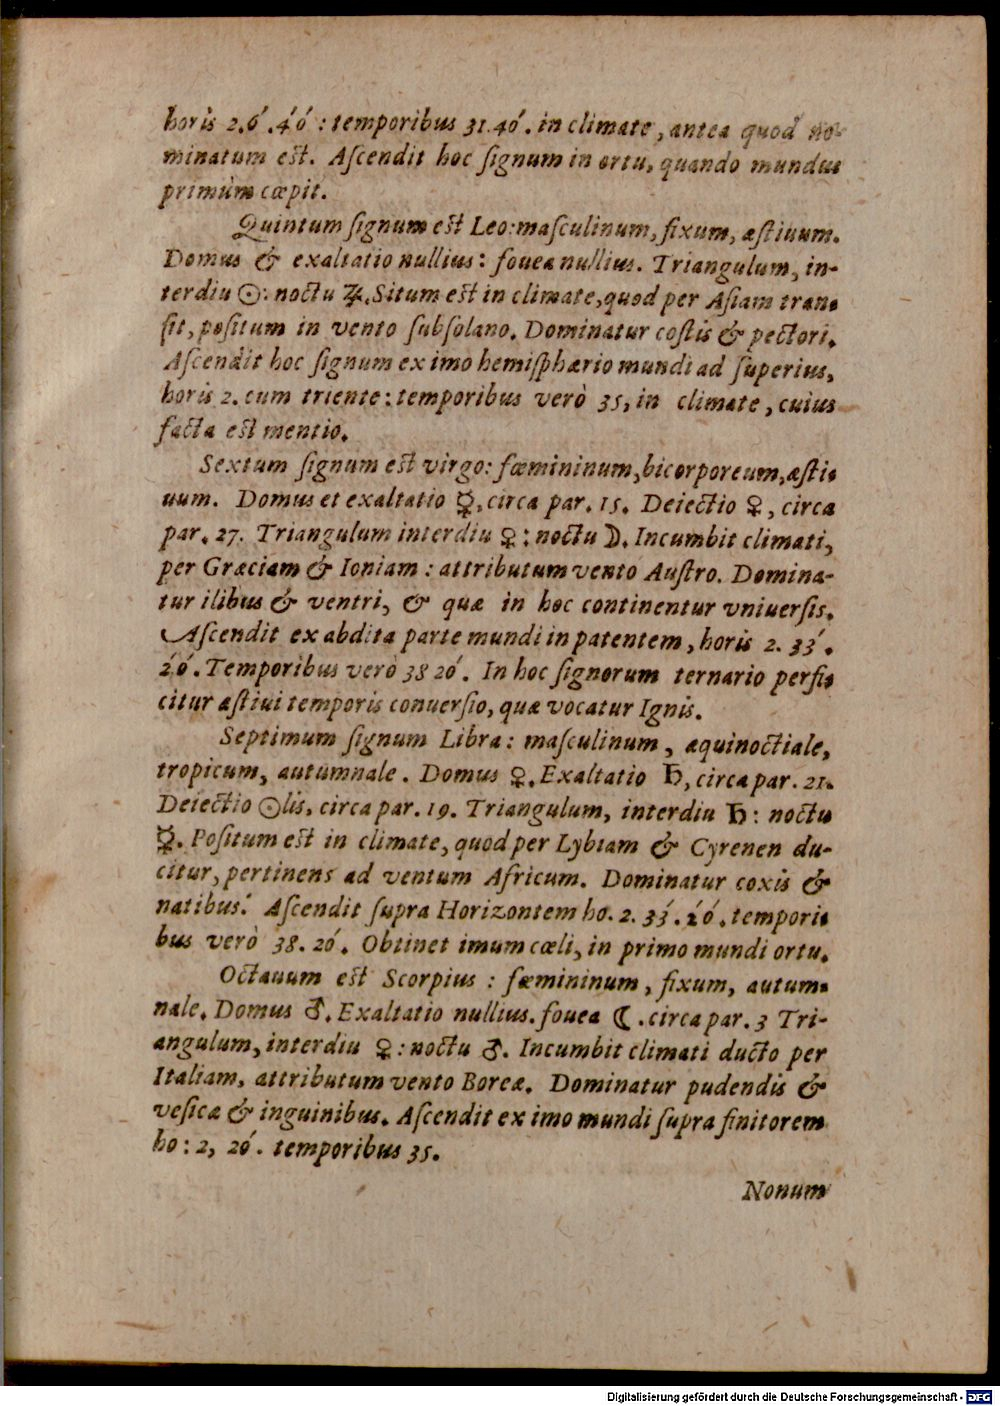 horis 2.6́.40́: temporibus 31.40́. in climate, antea quod no-
minatum est. Aſcendit hoc ſignum in ortu, quando mundus
primùm cœpit.
Quintum ſignum est Leo: maſculinum, fixum, æſtiuum.
Domus & exaltatio nullius: fouea nullius. Triangulum, in-
terdiu ☉: noctu ♃. Situm est in climate, quod per Aſiam tran-
ſit, poſitum in vento ſubſolano. Dominatur coſtis & pectori.
Aſcendit hoc ſignum ex imo hemiſphærio mundi ad ſuperius,
horis 2. cum triente: temporibus verò 35, in climate, cuius
facta est mentio.
Sextum ſignum est virgo: fœmininum, bicorporeum, æſti-
uum. Domus et exaltatio ☿, circa par. 15. Deiectio ♀, circa
par. 27. Triangulum interdiu ♀: noctu ☽. Incumbit climati,
per Græciam & Ioniam: attributum vento Auſtro. Domina-
tur ilibus & ventri, & quæ in hoc continentur vniuerſis.
Aſcendit ex abdita parte mundi in patentem, horis 2. 33́.
20́. Temporibus verò 38 20́. In hoc ſignorum ternario perfi-
citur æſtiui temporis conuerſio, quæ vocatur Ignis.
Septimum ſignum Libra: maſculinum, æquinoctiale,
tropicum, autumnale. Domus ♀. Exaltatio ♄, circa par. 21.
Deiectio ☉lis, circa par. 19. Triangulum, interdiu ♄: noctu
☿. Poſitum est in climate, quod per Lybiam & Cyrenen du-
citur, pertinens ad ventum Africum. Dominatur coxis &
natibus. Aſcendit ſupra Horizontem ho. 2. 33́. 20́. tempori-
bus verò 38. 20́. Obtinet imum cœli, in primo mundi ortu.
Octauum est Scorpius: fœmininum, fixum, autum-
nale. Domus ♂. Exaltatio nullius. fouea ☾. circa par. 3 Tri-
angulum, interdiu ♀: noctu ♂. Incumbit climati ducto per
Italiam, attributum vento Boreæ. Dominatur pudendis &
veſicæ & inguinibus. Aſcendit ex imo mundi ſupra finitorem
ho: 2, 20́. temporibus 35.
Nonum
Digitalisierung gefördert durch die Deutsche Forschungsgemeinschaft - DFG